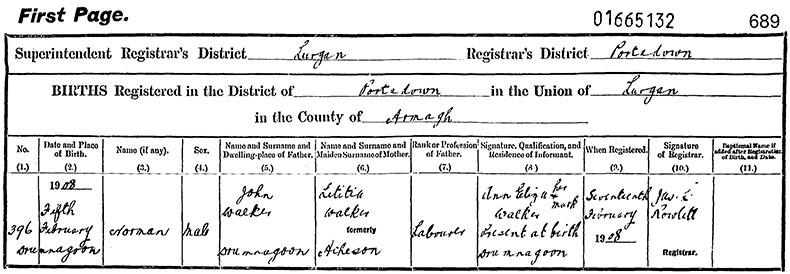 First Page. 01665132 689
Superintendent Registrar's District Lurgan Registrar's District Portadown
BIRTHS Registered in the District of Portadown in the Union of Lurgan
in the County of Armagh
No. Date and Place of Birth. Name (if any). Sex. Name and Surname and Dwelling-place of Father. Name and Surname and Maiden Surname of Mother. Rank or Profession of Father. Signature, Qualification, and Residence of Informant. When Registered. Signature of Registrar. Baptismal Name if added after Registration of Birth, and Date.
(1.) (2.) (3.) (4.) (5.) (6.) (7.) (8.) (9.) (10.) (11.)
1908 John Letitia Ann Eliza her + mark Seventeenth Jas. L.
Fifth Walker Walker Walker February Rowlett
396 February Norman Male formerly Labourer Present at birth 1908
Drumnagoon Drumnagoon Acheson Drumnagoon Registrar.